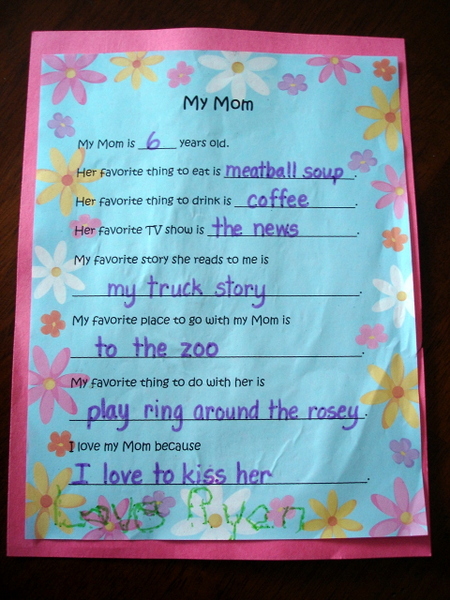 My Mom
My Mom is 6 years old.
Her favorite thing to eat is meatball soup.
Her favorite thing to drink is coffee.
Her favorite TV show is the news.
My favorite story she reads to me is
my truck story.
My favorite place to go with my Mom is
to the zoo.
My favorite thing to do with her is
play ring around the rosey.
I love my Mom because
I love to kiss her.
Love Ryan